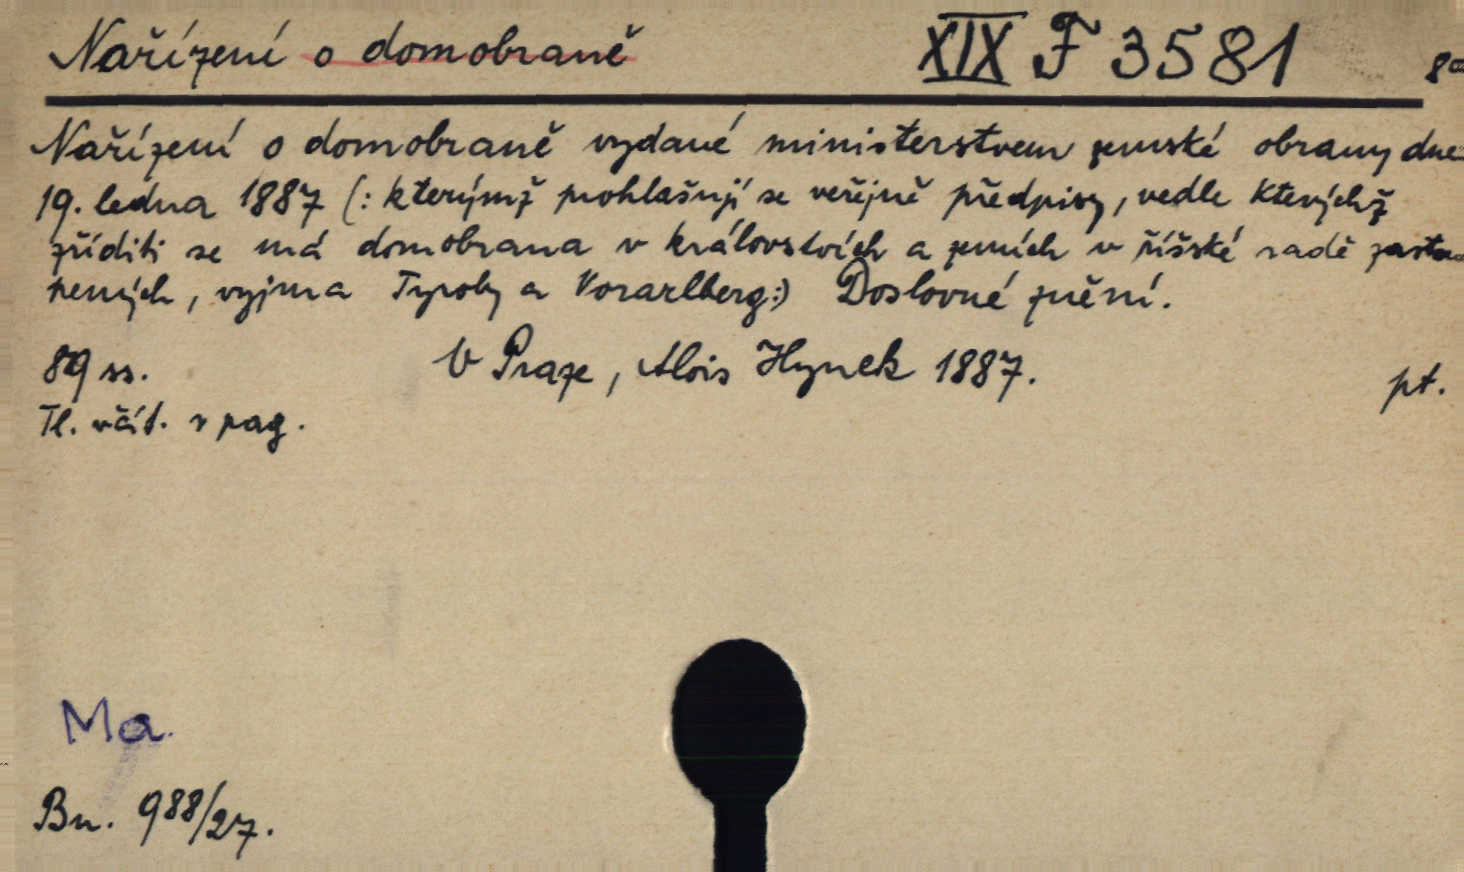 Nařízení o domobraně XIX F 3581 8°
Nařízení o domobraně vydané ministerstvem zemské obrany dne
19. ledna 1887 (: kterýmž prohlašují se veřejně předpisy, vedle kterýchž
zříditi se má domobrana v královstvích a zemích v říšské radě zastou
pených, vyjma Tyroly a Vorarlberg:) Doslovné znění.
89 ss. V Praze, Alois Hynek 1887. pt.
Tl. včít. v pag.
Ma.
Bn. 988/27.